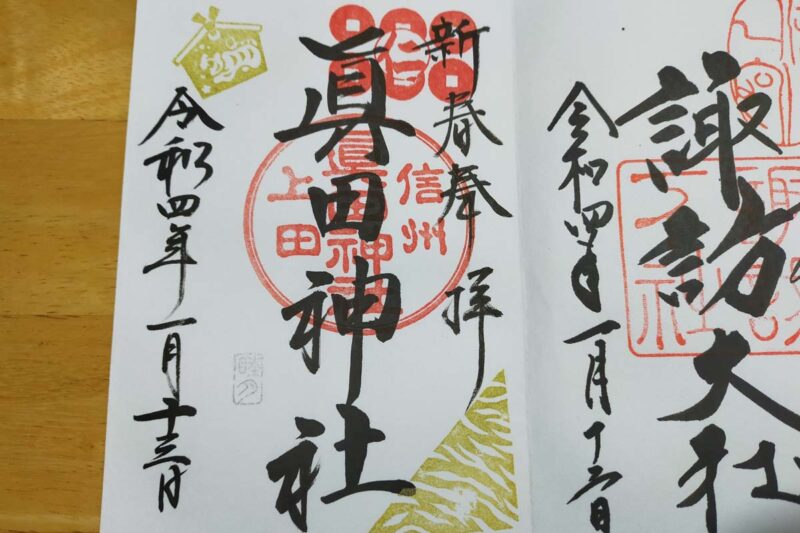 諏訪大社
令和四年一月十三日
新春奉拝
眞田神社
信州
眞田神社
上田
令和四年一月十三日